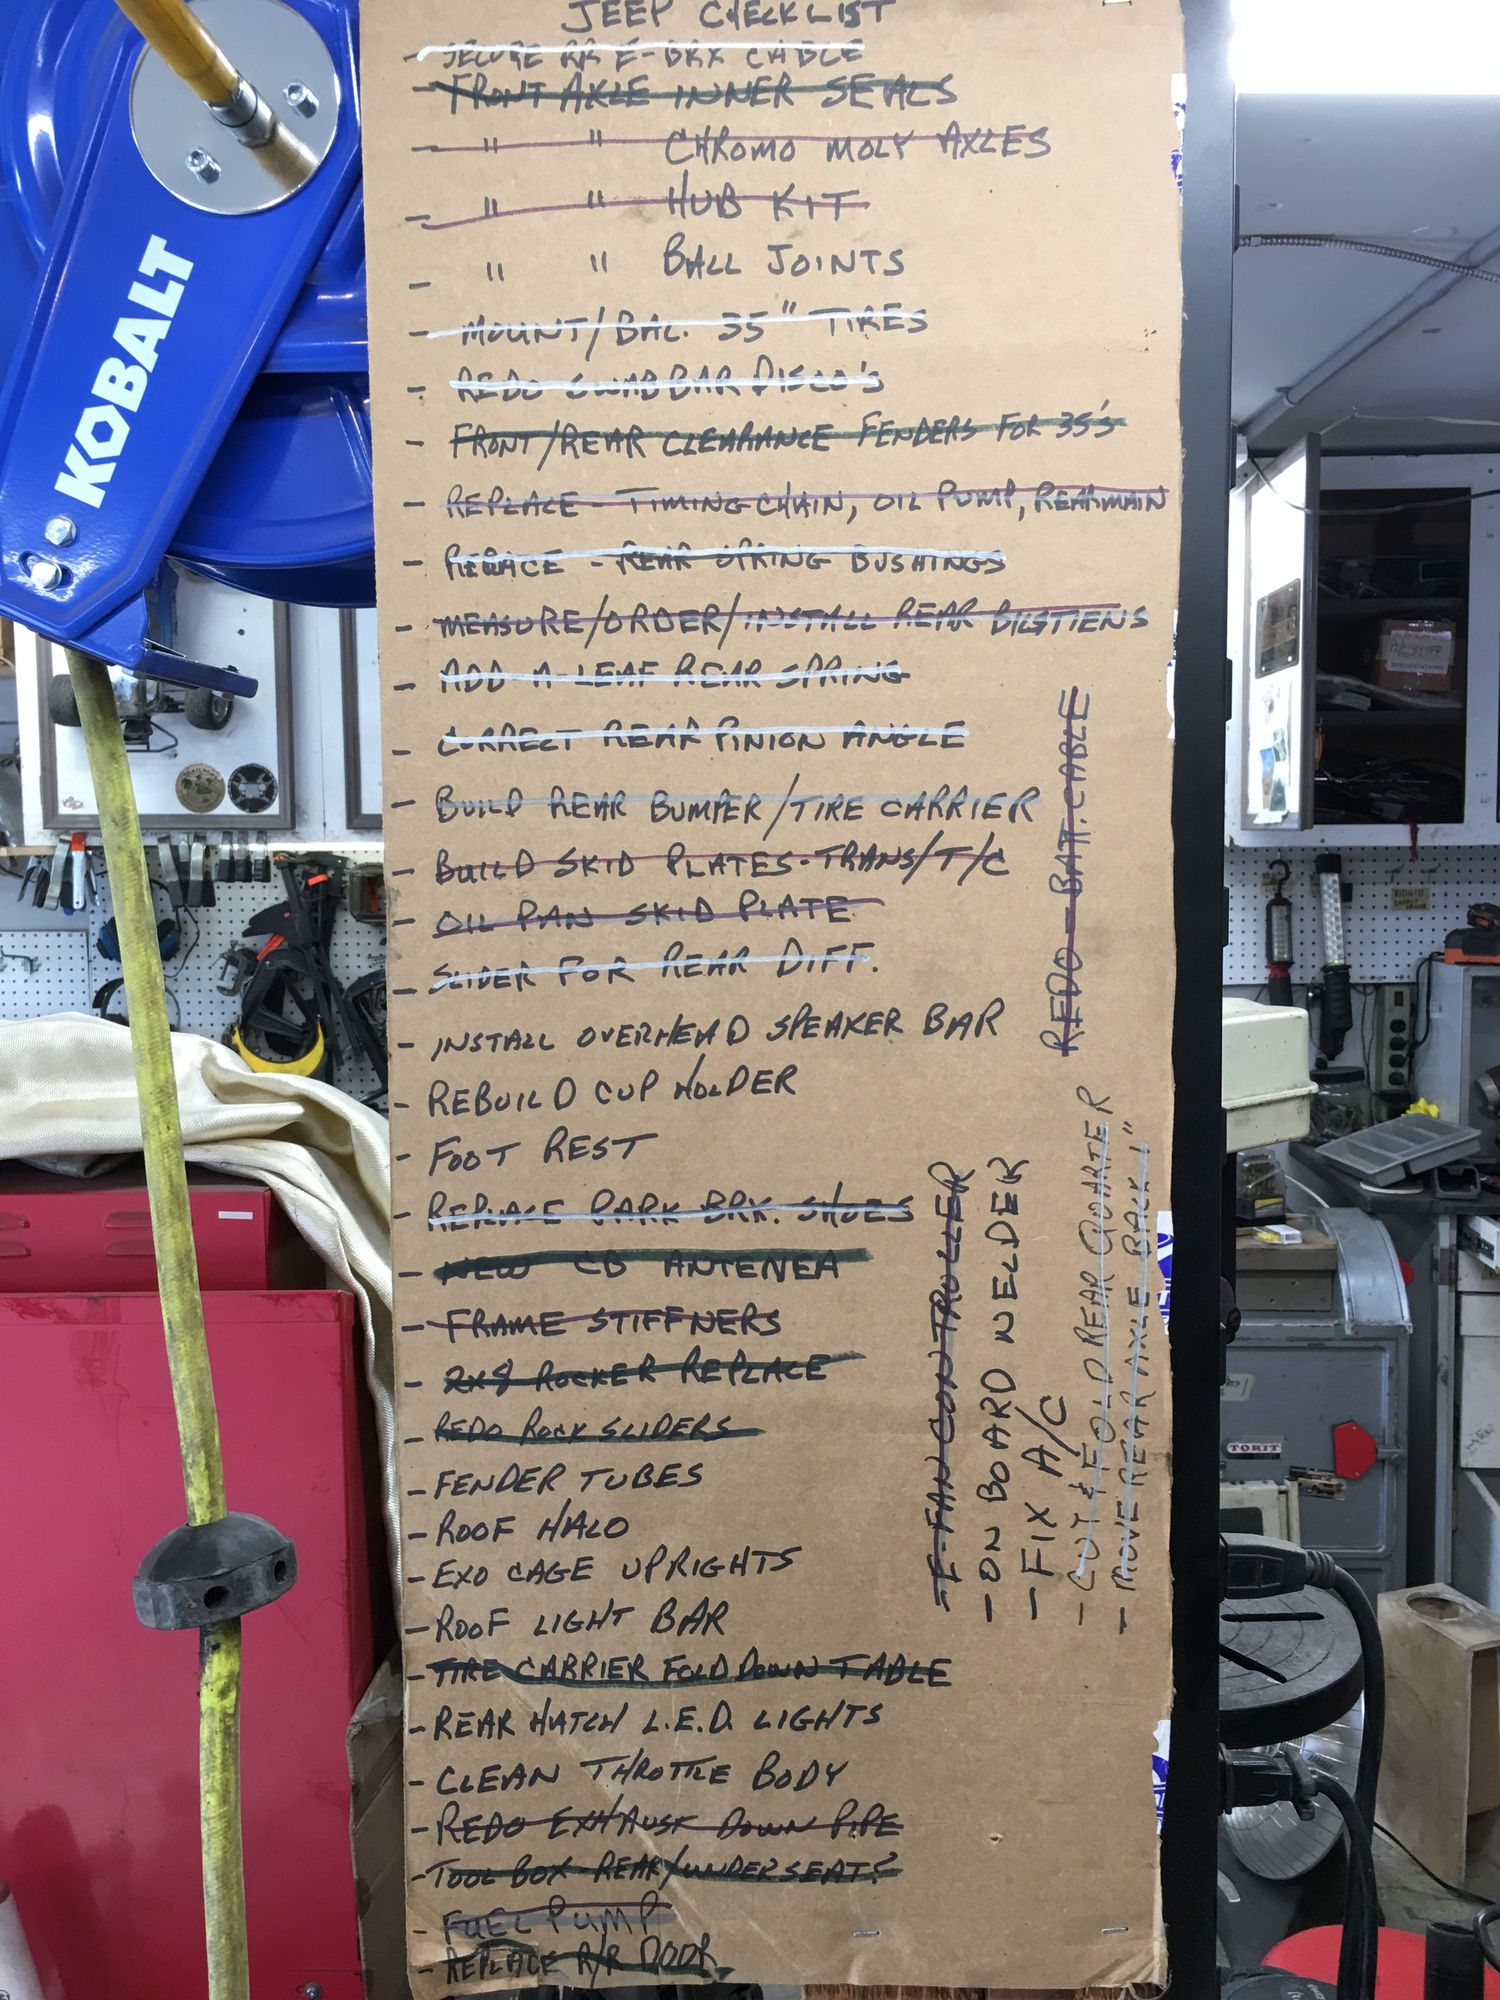 JEEP CHECKLIST
- SECURE RR E-BRK CABLE
- FRONT AXLE INNER SEALS
- " " CHROMO MOLY AXLES
- " " HUB KIT
- " " BALL JOINTS
- MOUNT/BAL. 35" TIRES
- REDO SWABBAR DISCO'S
- FRONT/REAR CLEARANCE FENDERS FOR 35'S
- REPLACE - TIMING CHAIN, OIL PUMP, REARMAIN
- REPLACE - REAR SPRING BUSHINGS
- MEASURE/ORDER/INSTALL REAR BILSTIENS
- ADD A-LEAF REAR SPRING
- CORRECT REAR PINION ANGLE
- BUILD REAR BUMPER/TIRE CARRIER
- BUILD SKID PLATES - TRANS/T/C
- OIL PAN SKID PLATE
- SLIDER FOR REAR DIFF.
- INSTALL OVERHEAD SPEAKER BAR
- REBUILD CUP HOLDER
- FOOT REST
- REPLACE PARK BRK. SHOES
- NEW CB ANTENEA
- FRAME STIFFNERS
- 2x8 ROCKER REPLACE
- REDO ROCK SLIDERS
- FENDER TUBES
- ROOF HALO
- EXO CAGE UPRIGHTS
- ROOF LIGHT BAR
- TIRE CARRIER FOLD DOWN TABLE
- REAR HATCH L.E.D. LIGHTS
- CLEAN THROTTLE BODY
- REDO EXHAUST DOWN PIPE
- TOOL BOX REAR/UNDERSEAT?
- FUEL PUMP
- REPLACE R/R DOOR
REDO - BATT. CABLE
- E-FAN CONTROLLER
- ON BOARD WELDER
- FIX A/C
- CUT & FOLD REAR QUARTER
- MOVE REAR AXLE BACK 1"
KOBALT
TORIT
RIDGID